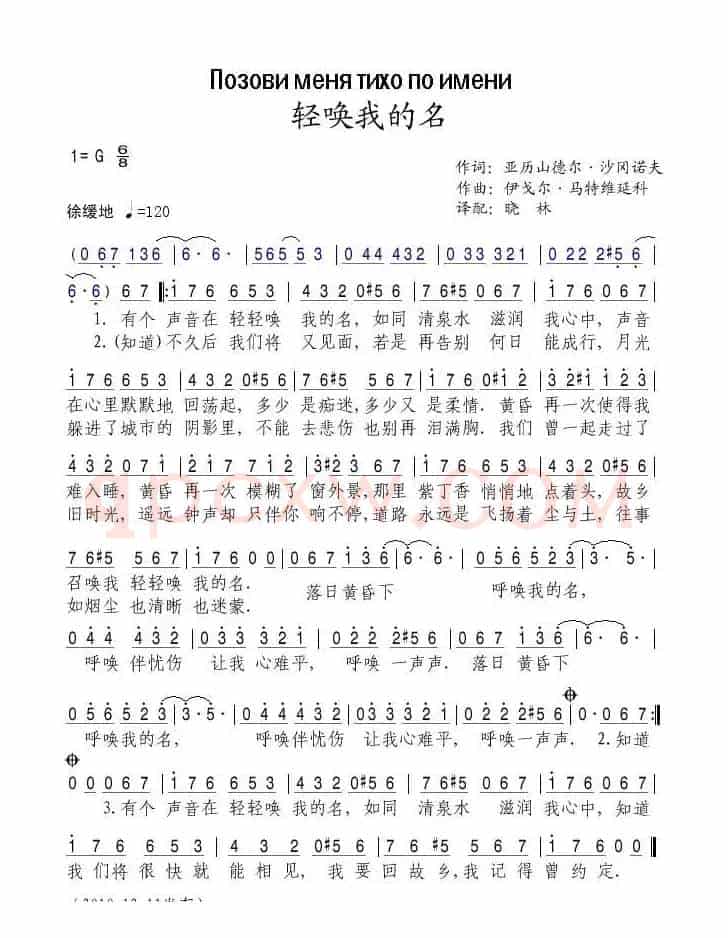 Позови меня тихо по имени
轻唤我的名
1= G 6/8
作词: 亚历山德尔·沙冈诺夫
作曲: 伊戈尔·马特维延科
徐缓地 ♩=120
译配: 晓 林
(0 6 7 1 3 6 | 6· 6· | 5 6 5 5 3 | 5· 5· | 0 4 4 4 3 2 | 0 3 3 3 2 1 | 0 2 2 2 #5 6 |
6· 6·) 6 7 |: 1 7 6 6 5 3 | 4 3 2 0 #5 6 | 7 6 #5 0 6 7 | 1 7 6 0 7 6 |
1. 有个 声音在 轻轻唤 我的名, 如同 清泉水 滋润 我心中, 声音
2. (知道)不久后 我们将 又见面, 若是 再告别 何日 能成行, 月光
1 7 6 6 5 3 | 4 3 2 0 #5 6 | 7 6 #5 6 7 | 1 7 6 0 6 7 | 1 2 3 #1 2 | 3 2 #1 1 2 3 |
在心里默默地 回荡起, 多少 是痴迷,多少又 是柔情. 黄昏 再一次使得我
躲进了城市的 阴影里, 不能 去悲伤 也别再 泪满胸. 我们 曾一起走过了
4 3 2 0 7 1 | 2 1 7 7 1 2 | 1 7 6 0 7 1 | 3 #2 3 6 7 | 1 7 6 6 5 3 | 4 3 2 0 #5 6 |
难入睡, 黄昏 再一次 模糊了 窗外景,那里 紫丁香 悄悄地 点着头, 故乡
旧时光, 遥远 钟声却 只伴你 响不停,道路 永远是 飞扬着 尘与土, 往事
qpcxw.COM
7 6 #5 5 6 7 | 1 7 6 0 0 | 0 6 7 1 3 6 | 6· 6· | 0 5 6 5 2 3 | 3· 5· |
召唤我 轻轻唤 我的名. 落日黄昏下 呼唤我的名,
如烟尘 也清晰 也迷蒙.
0 4 4 4 3 2 | 0 3 3 3 2 1 | 0 2 2 2 #5 6 | 0· 0 6 7 | 0 6 7 1 3 6 | 6· 6· |
呼唤 伴忧伤 让我 心难平, 呼唤 一声声. 落日 黄昏下
0 5 6 5 2 3 | 3· 5· | 0 4 4 4 3 2 | 0 3 3 3 2 1 | 0 2 2 2 #5 6 | 0· 0 6 7 :|
呼唤我的名, 呼唤伴忧伤 让我心难平, 呼唤一声声. 2.知道
0 0 0 6 7 | 1 7 6 6 5 3 | 4 3 2 0 #5 6 | 7 6 #5 0 6 7 | 1 7 6 0 6 7 |
3.有个 声音在 轻轻唤 我的名, 如同 清泉水 滋润 我心中, 知道
1 7 6 6 5 3 | 4 3 2 0 #5 6 | 7 6 #5 5 6 7 | 1 7 6 0 0 ‖
我 们将 很 快就 能 相 见, 我 要 回 故 乡,我 记得 曾 约定.